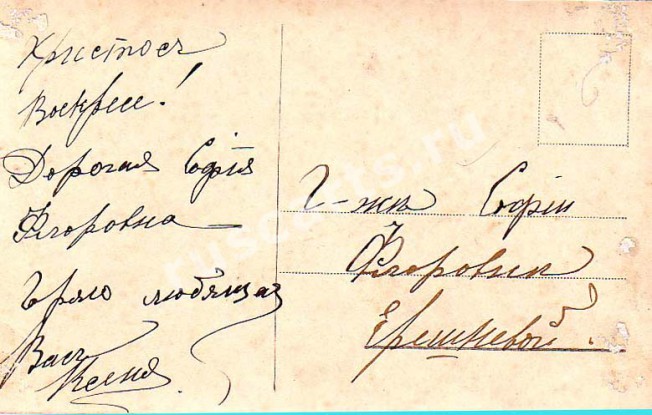 Христосъ
Воскресе!
Дорогая Софія
Федоровна
Горячо любящая
Васъ
Ксенія
Г-жѣ Софіи
Федоровнѣ
ruscards.ru